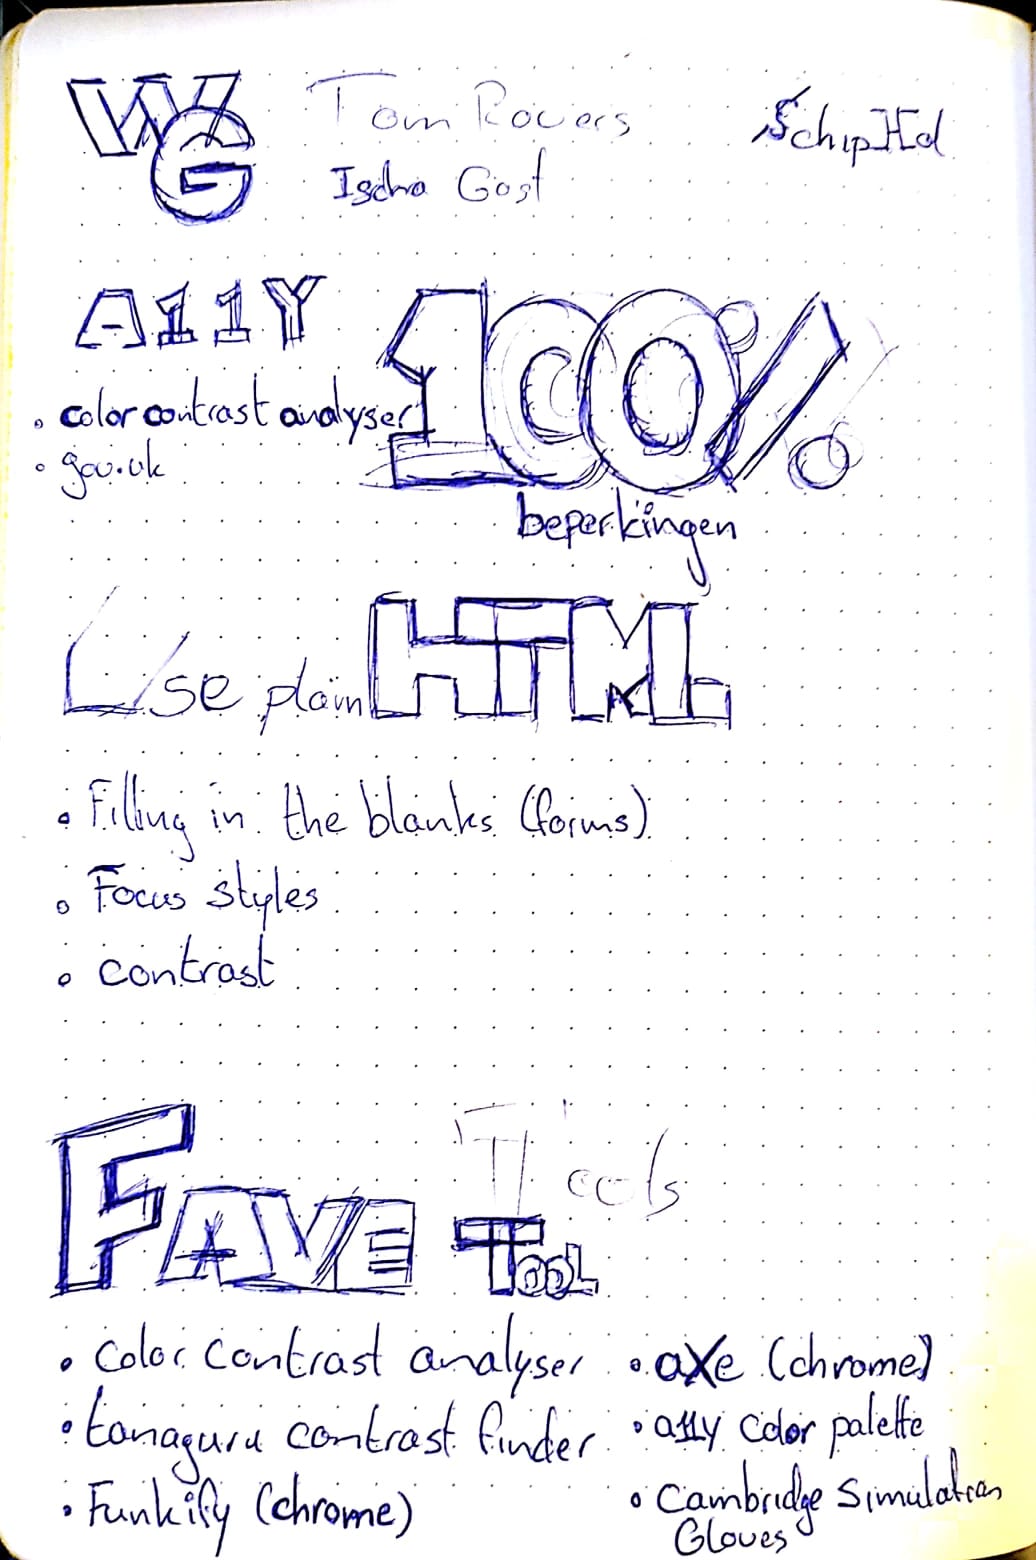 WG Tom Rovers
Ischa Gast
A11Y
100%
• color contrast analyser
• gov.uk
beperkingen
Use plain HTML
• Filling in the blanks (forms)
• Focus styles
• contrast
Tools
FAVE Tool
• Color contrast analyser
• tanaguru contrast finder
• Funkify (chrome)
• aXe (chrome)
• a11y color palette
• Cambridge Simulation
Gloves